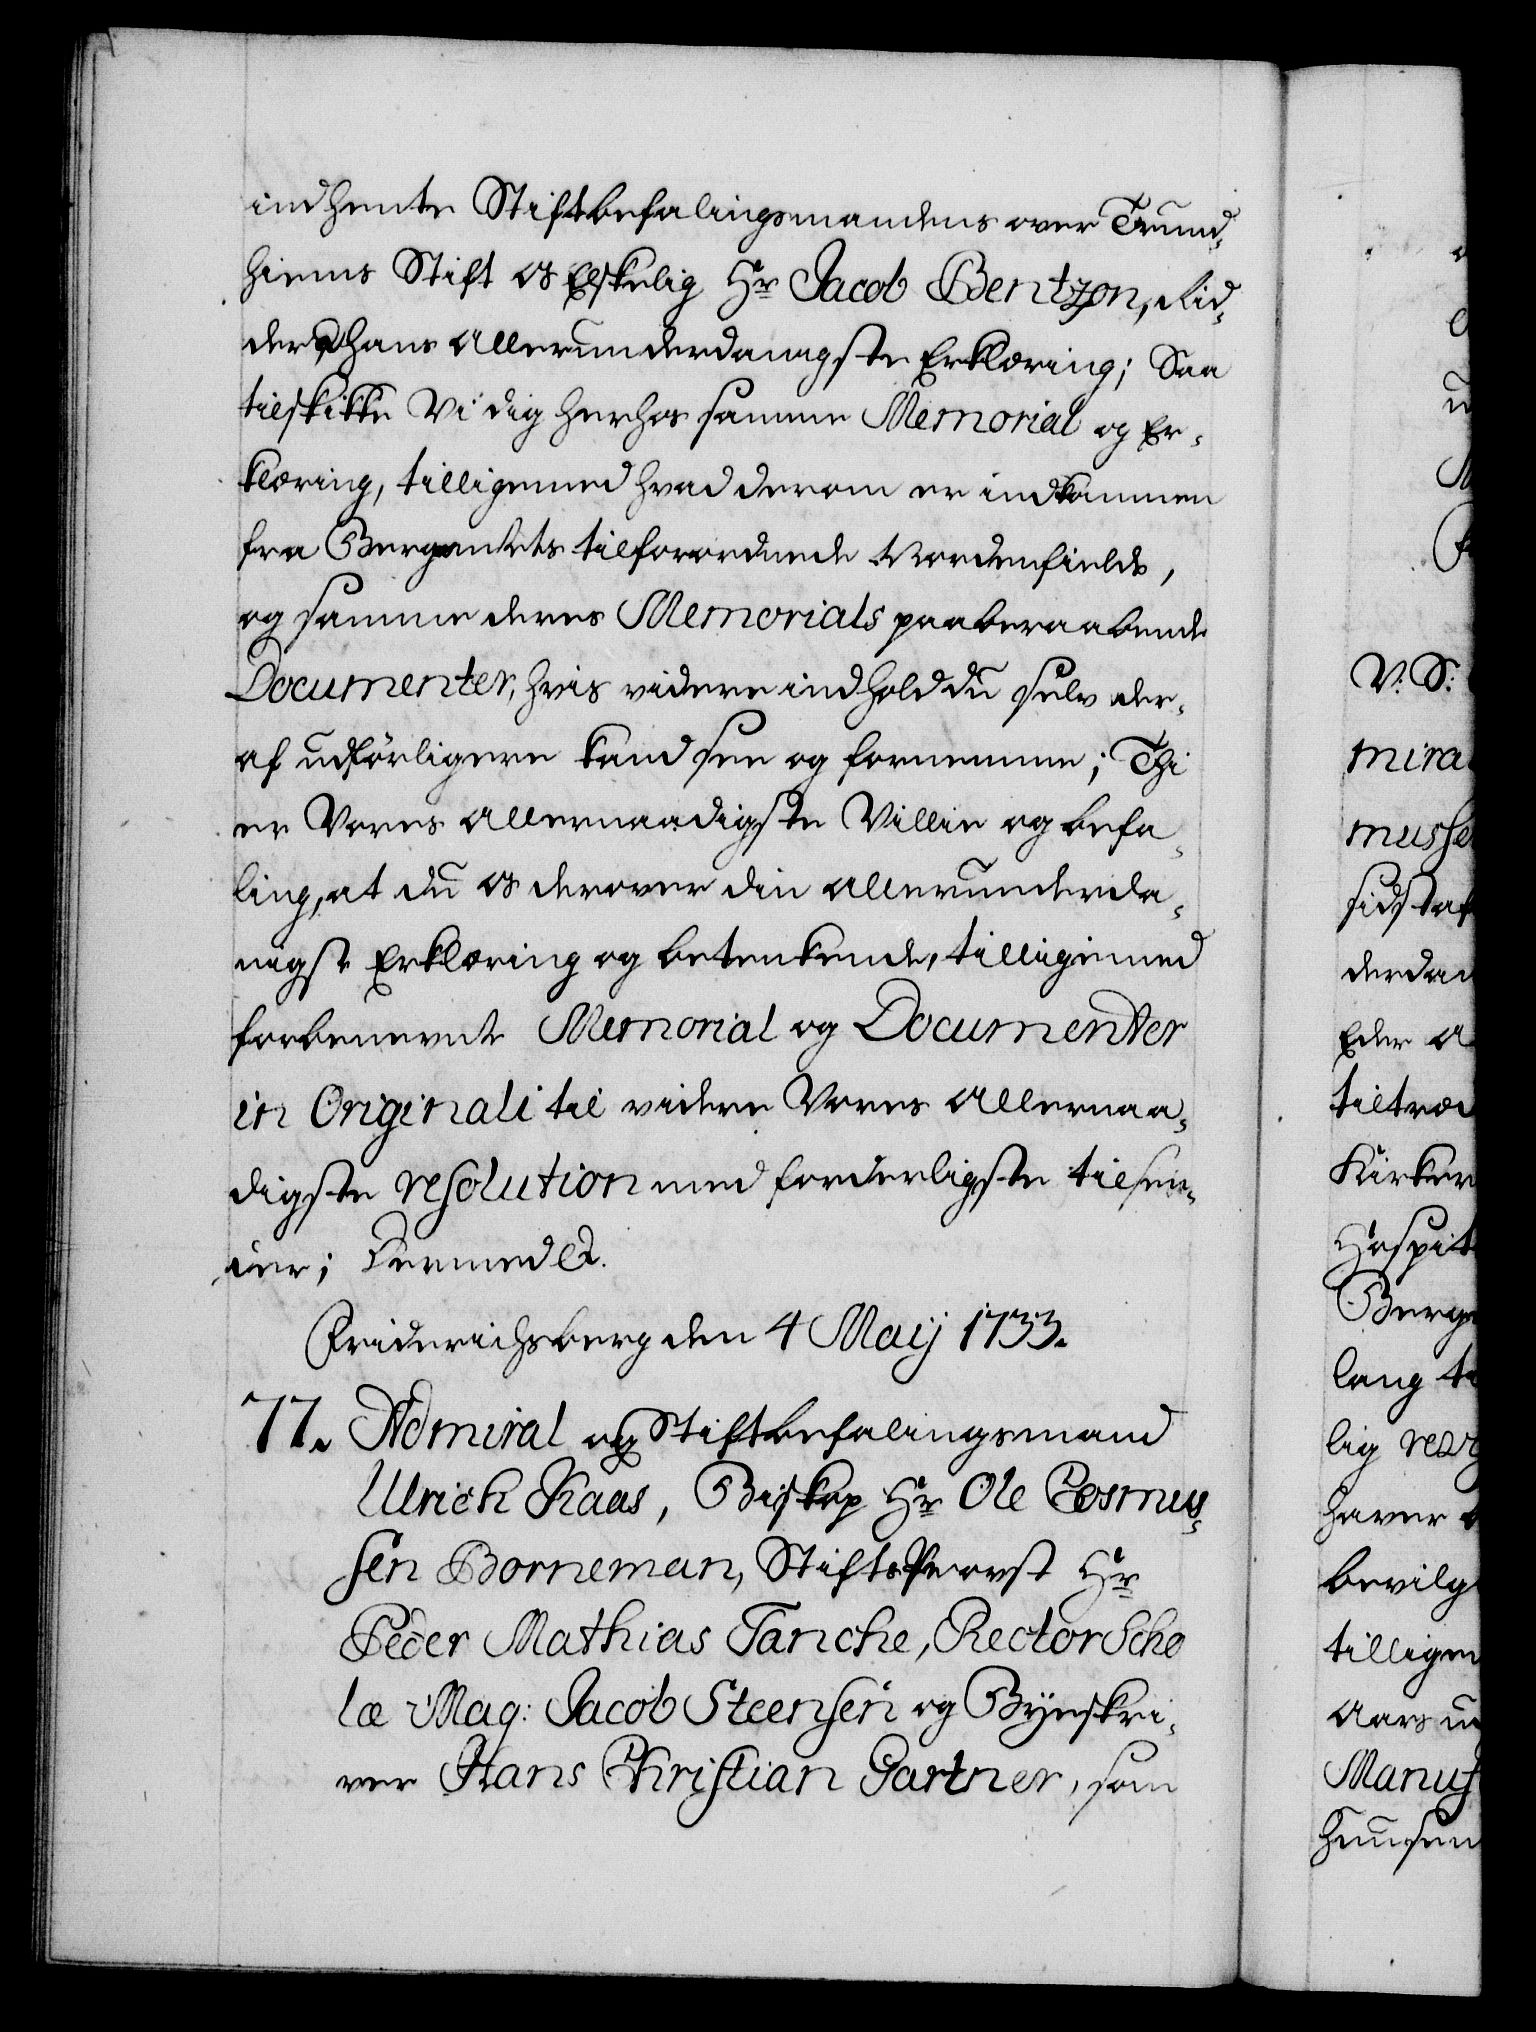 indhente Stiftbefalingsmandens over Trund,
hiems Stift os Elskelig Hr Jacob Bentzon, Rid,
der hans allerunderdanigste Erklæring; Saa
tilskikke Vi dig herhos samme Memorial og Er,
klæring, tilligemed hvad derom er indkommen
fra Bergamtets tilforordnede Nordenfields,
og samme deres Memorials paaberaabende
Documenter, hvis videre indhold du selv der,
af udførligere kand see og fornemme; Thi
er Vores allernaadigste Villie og befa,
ling, at du os derover din allerunderda,
nigst Erklæring og betenkende, tilligemed
forbenevnte Memorial og Documenter
in Originali til videre Vores allernaa,
digste resolution med forderligste tilsen,
der; Dermed etc.
Friderichsberg den 4 Maij 1733.
77. Admiral og Stiftbefalingsmand
Ulrich Kaas, Biskop Hr Ole Cosmus,
sen Borneman, StiftsProvst Hr
Peder Mathias Tanche, Rector Scho
læ Mag: Jacob Steensen og Byeskri,
ver Hans Christian Gartner, som
V: S:
mira
musse
sidst af
derdan
Eder a
tiltræ
Kirker
Hospit
Berge
lang t
lig
haver
bevilg
tilligem
Aars
Manus